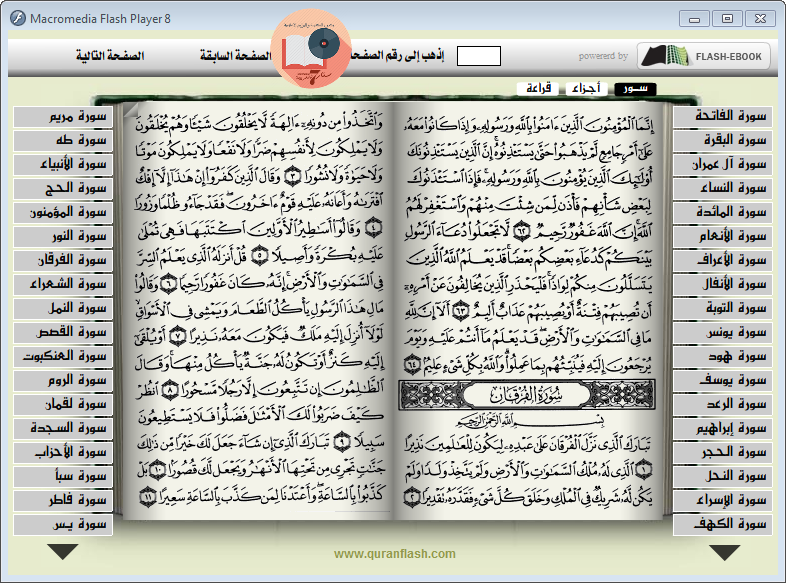 Macromedia Flash Player 8
الصفحة التالية
الصفحة السابقة
إذهب إلى رقم الصفحة
powererd by
FLASH-EBOOK
سـور
أجـزاء
قراءة
سورة الفاتحة
سورة البقرة
سورة آل عمران
سورة النساء
سورة المائدة
سورة الأنعام
سورة الأعراف
سورة الأنفال
سورة التوبة
سورة يونس
سورة هود
سورة يوسف
سورة الرعد
سورة إبراهيم
سورة الحجر
سورة النحل
سورة الإسراء
سورة الكهف
إِنَّمَا ٱلْمُؤْمِنُونَ ٱلَّذِينَ ءَامَنُوا۟ بِٱللَّهِ وَرَسُولِهِۦ وَإِذَا كَانُوا۟ مَعَهُۥ
عَلَىٰٓ أَمْرٍ جَامِعٍ لَّمْ يَذْهَبُوا۟ حَتَّىٰ يَسْتَـْٔذِنُوهُ ۚ إِنَّ ٱلَّذِينَ يَسْتَـْٔذِنُونَكَ
أُو۟لَـٰٓئِكَ ٱلَّذِينَ يُؤْمِنُونَ بِٱللَّهِ وَرَسُولِهِۦ ۚ فَإِذَا ٱسْتَـْٔذَنُوكَ
لِبَعْضِ شَأْنِهِمْ فَأْذَن لِّمَن شِئْتَ مِنْهُمْ وَٱسْتَغْفِرْ لَهُمُ
ٱللَّهَ ۚ إِنَّ ٱللَّهَ غَفُورٌ رَّحِيمٌ ٦٢ لَّا تَجْعَلُوا۟ دُعَآءَ ٱلرَّسُولِ
بَيْنَكُمْ كَدُعَآءِ بَعْضِكُم بَعْضًا ۚ قَدْ يَعْلَمُ ٱللَّهُ ٱلَّذِينَ
يَتَسَلَّلُونَ مِنكُمْ لِوَاذًا ۚ فَلْيَحْذَرِ ٱلَّذِينَ يُخَالِفُونَ عَنْ أَمْرِهِۦٓ
أَن تُصِيبَهُمْ فِتْنَةٌ أَوْ يُصِيبَهُمْ عَذَابٌ أَلِيمٌ ٦٣ أَلَآ إِنَّ لِلَّهِ
مَا فِى ٱلسَّمَـٰوَٰتِ وَٱلْأَرْضِ ۖ قَدْ يَعْلَمُ مَآ أَنتُمْ عَلَيْهِ وَيَوْمَ
يُرْجَعُونَ إِلَيْهِ فَيُنَبِّئُهُم بِمَا عَمِلُوا۟ ۗ وَٱللَّهُ بِكُلِّ شَىْءٍ عَلِيمٌۢ ٦٤
سُورَةُ الفُرْقَانِ
بِسْمِ ٱللَّهِ ٱلرَّحْمَـٰنِ ٱلرَّحِيمِ
تَبَارَكَ ٱلَّذِى نَزَّلَ ٱلْفُرْقَانَ عَلَىٰ عَبْدِهِۦ لِيَكُونَ لِلْعَـٰلَمِينَ نَذِيرًا
١ ٱلَّذِى لَهُۥ مُلْكُ ٱلسَّمَـٰوَٰتِ وَٱلْأَرْضِ وَلَمْ يَتَّخِذْ وَلَدًا وَلَمْ
يَكُن لَّهُۥ شَرِيكٌ فِى ٱلْمُلْكِ وَخَلَقَ كُلَّ شَىْءٍ فَقَدَّرَهُۥ تَقْدِيرًا ٢
وَٱتَّخَذُوا۟ مِن دُونِهِۦٓ ءَالِهَةً لَّا يَخْلُقُونَ شَيْـًٔا وَهُمْ يُخْلَقُونَ
وَلَا يَمْلِكُونَ لِأَنفُسِهِمْ ضَرًّا وَلَا نَفْعًا وَلَا يَمْلِكُونَ مَوْتًا
وَلَا حَيَوٰةً وَلَا نُشُورًا ٣ وَقَالَ ٱلَّذِينَ كَفَرُوٓا۟ إِنْ هَـٰذَآ إِلَّآ إِفْكٌ
ٱفْتَرَىٰهُ وَأَعَانَهُۥ عَلَيْهِ قَوْمٌ ءَاخَرُونَ ۖ فَقَدْ جَآءُو ظُلْمًا وَزُورًا
٤ وَقَالُوٓا۟ أَسَـٰطِيرُ ٱلْأَوَّلِينَ ٱكْتَتَبَهَا فَهِىَ تُمْلَىٰ
عَلَيْهِ بُكْرَةً وَأَصِيلًا ٥ قُلْ أَنزَلَهُ ٱلَّذِى يَعْلَمُ ٱلسِّرَّ
فِى ٱلسَّمَـٰوَٰتِ وَٱلْأَرْضِ ۚ إِنَّهُۥ كَانَ غَفُورًا رَّحِيمًا ٦ وَقَالُوا۟
مَالِ هَـٰذَا ٱلرَّسُولِ يَأْكُلُ ٱلطَّعَامَ وَيَمْشِى فِى ٱلْأَسْوَاقِ ۙ
لَوْلَآ أُنزِلَ إِلَيْهِ مَلَكٌ فَيَكُونَ مَعَهُۥ نَذِيرًا ٧ أَوْ يُلْقَىٰٓ
إِلَيْهِ كَنزٌ أَوْ تَكُونُ لَهُۥ جَنَّةٌ يَأْكُلُ مِنْهَا ۚ وَقَالَ
ٱلظَّـٰلِمُونَ إِن تَتَّبِعُونَ إِلَّا رَجُلًا مَّسْحُورًا ٨ ٱنظُرْ
كَيْفَ ضَرَبُوا۟ لَكَ ٱلْأَمْثَـٰلَ فَضَلُّوا۟ فَلَا يَسْتَطِيعُونَ
سَبِيلًا ٩ تَبَارَكَ ٱلَّذِىٓ إِن شَآءَ جَعَلَ لَكَ خَيْرًا مِّن ذَٰلِكَ
جَنَّـٰتٍ تَجْرِى مِن تَحْتِهَا ٱلْأَنْهَـٰرُ وَيَجْعَل لَّكَ قُصُورًۢا ١٠ بَلْ
كَذَّبُوا۟ بِٱلسَّاعَةِ ۖ وَأَعْتَدْنَا لِمَن كَذَّبَ بِٱلسَّاعَةِ سَعِيرًا ١١
سورة مريم
سورة طه
سورة الأنبياء
سورة الحج
سورة المؤمنون
سورة النور
سورة الفرقان
سورة الشعراء
سورة النمل
سورة القصص
سورة العنكبوت
سورة الروم
سورة لقمان
سورة السجدة
سورة الأحزاب
سورة سبأ
سورة فاطر
سورة يـس
www.quranflash.com